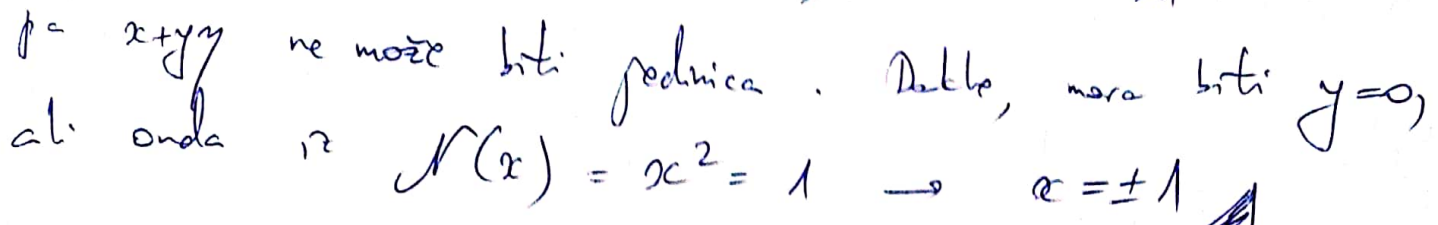 pa x+yη ne može biti jedinica. Dakle, mora biti y=0,
ali onda iz N(x) = x² = 1 → x = ±1